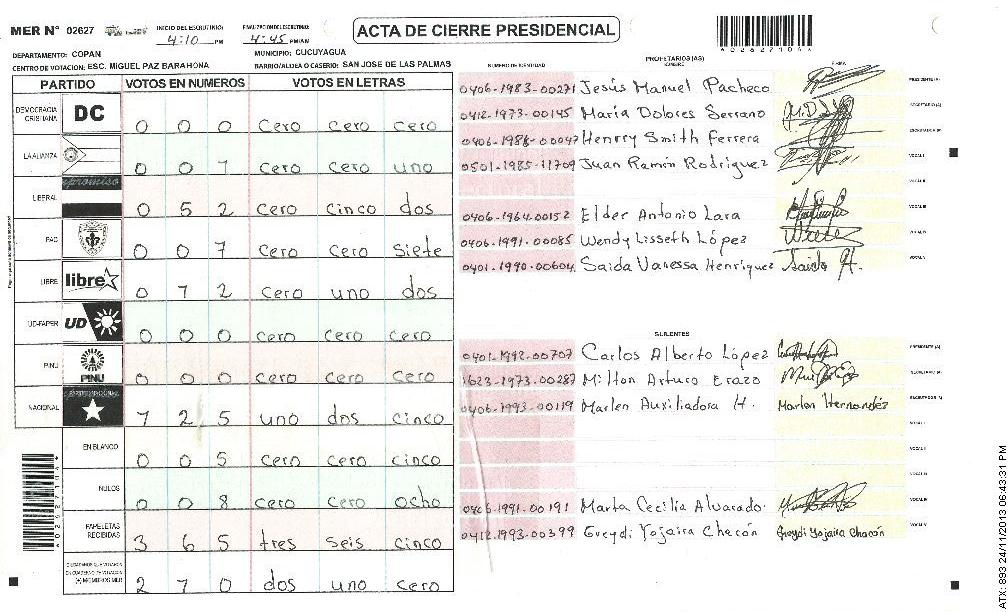 MER Nº 02627
INICIO DEL ESCRUTINIO: 4:10 PM
FINALIZACION DEL ESCRUTINIO: 4:45 PM/AM
ACTA DE CIERRE PRESIDENCIAL
DEPARTAMENTO: COPAN
MUNICIPIO: CUCUYAGUA
CENTRO DE VOTACION: ESC. MIGUEL PAZ BARAHONA
BARRIO/ALDEA O CASERIO: SAN JOSE DE LAS PALMAS
PARTIDO VOTOS EN NUMEROS VOTOS EN LETRAS
DEMOCRACIA CRISTIANA DC 0 0 0 cero cero cero
LA ALIANZA 0 0 1 cero cero uno
LIBERAL 0 5 2 cero cinco dos
PAC 0 0 7 cero cero siete
LIBRE libre 0 1 2 cero uno dos
UD-FAPER UD 0 0 0 cero cero cero
PINU PINU 0 0 0 cero cero cero
NACIONAL 1 2 5 uno dos cinco
EN BLANCO 0 0 5 cero cero cinco
NULOS 0 0 8 cero cero ocho
PAPELETAS RECIBIDAS 3 6 5 tres seis cinco
CIUDADANOS QUE VOTARON EN CUADERNO DE VOTACION (+) MIEMBROS MER 2 1 0 dos uno cero
NUMERO DE IDENTIDAD
PROPIETARIOS (AS)
NOMBRE
FIRMA
0406-1983-00271 Jesús Manuel Pacheco PRESIDENTE (A)
0412-1973-00145 María Dolores Serrano SECRETARIO (A)
Henrry Smith Ferrera ESCRUTADOR (A)
0501-1985-11709 Juan Ramón Rodriguez VOCAL I
VOCAL II
0406-1964-00152 Elder Antonio Lara VOCAL III
0406-1991-00085 Wendy Lisseth López VOCAL IV
0401-1990-00604 Saida Vanessa Henriquez Saida H. VOCAL V
SUPLENTES
0401-1992-00707 Carlos Alberto López PRESIDENTE (A)
1623-1973-00287 Milton Arturo Erazo SECRETARIO (A)
0406-1993-00119 Marlen Auxiliadora H. Marlen Hernandéz ESCRUTADOR (A)
VOCAL I
VOCAL II
0406-1991-00191 Marta Cecilia Alvarado. VOCAL IV
0412-1993-00399 Greydi Yojaira Chacón Greydi Yojaira Chacón VOCAL V
ATX: 893 24/11/2013 06:43:31 PM